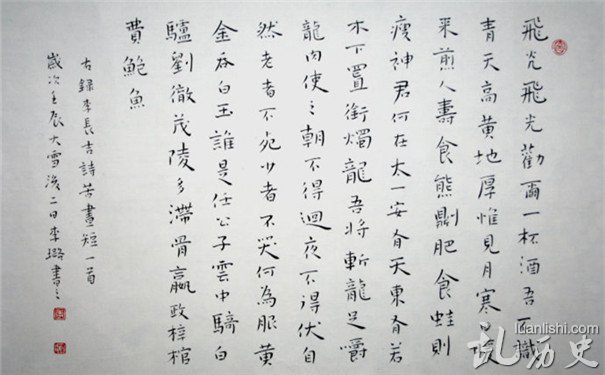 飛光飛光勸爾一杯酒吾不識
青天高黃地厚惟見月寒日暖
來煎人壽食熊則肥食蛙則
瘦神君何在太一安有天東有若
木下置銜燭龍吾將斬龍足嚼
龍肉使之朝不得迴夜不得伏自
然老者不死少者不哭何為服黃
金吞白玉誰是任公子雲中騎白
驢劉徹茂陵多滯骨嬴政梓棺
費鮑魚
右錄李長吉詩苦晝短一首
歲次壬辰大雪後二日李璐書之
luanlishi.com
乱历史